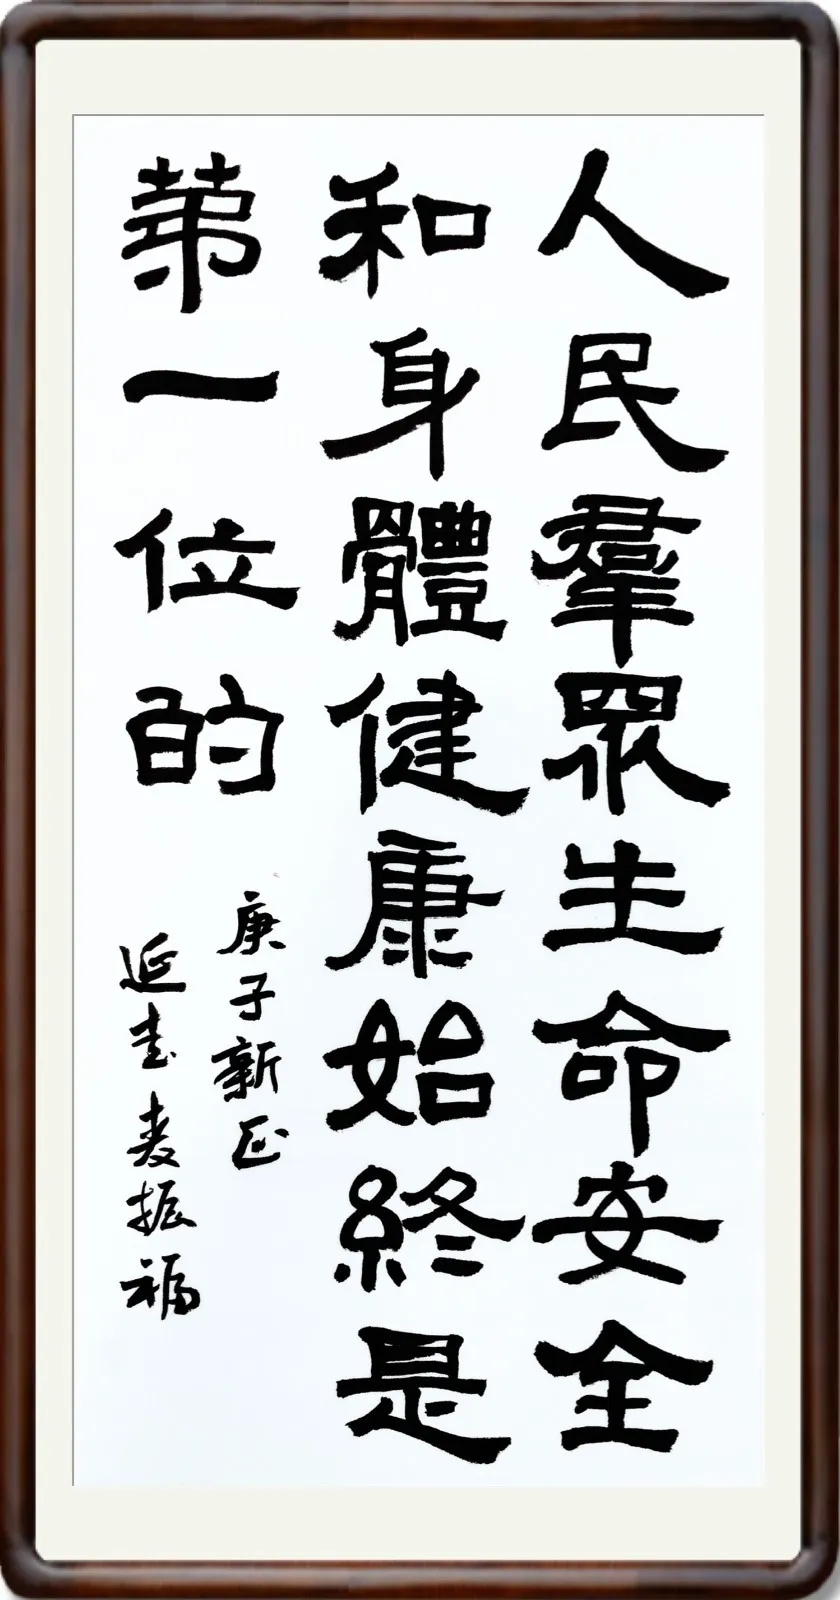 人民羣眾生命安全
和身體健康始終是
第一位的
庚子新正
延振福